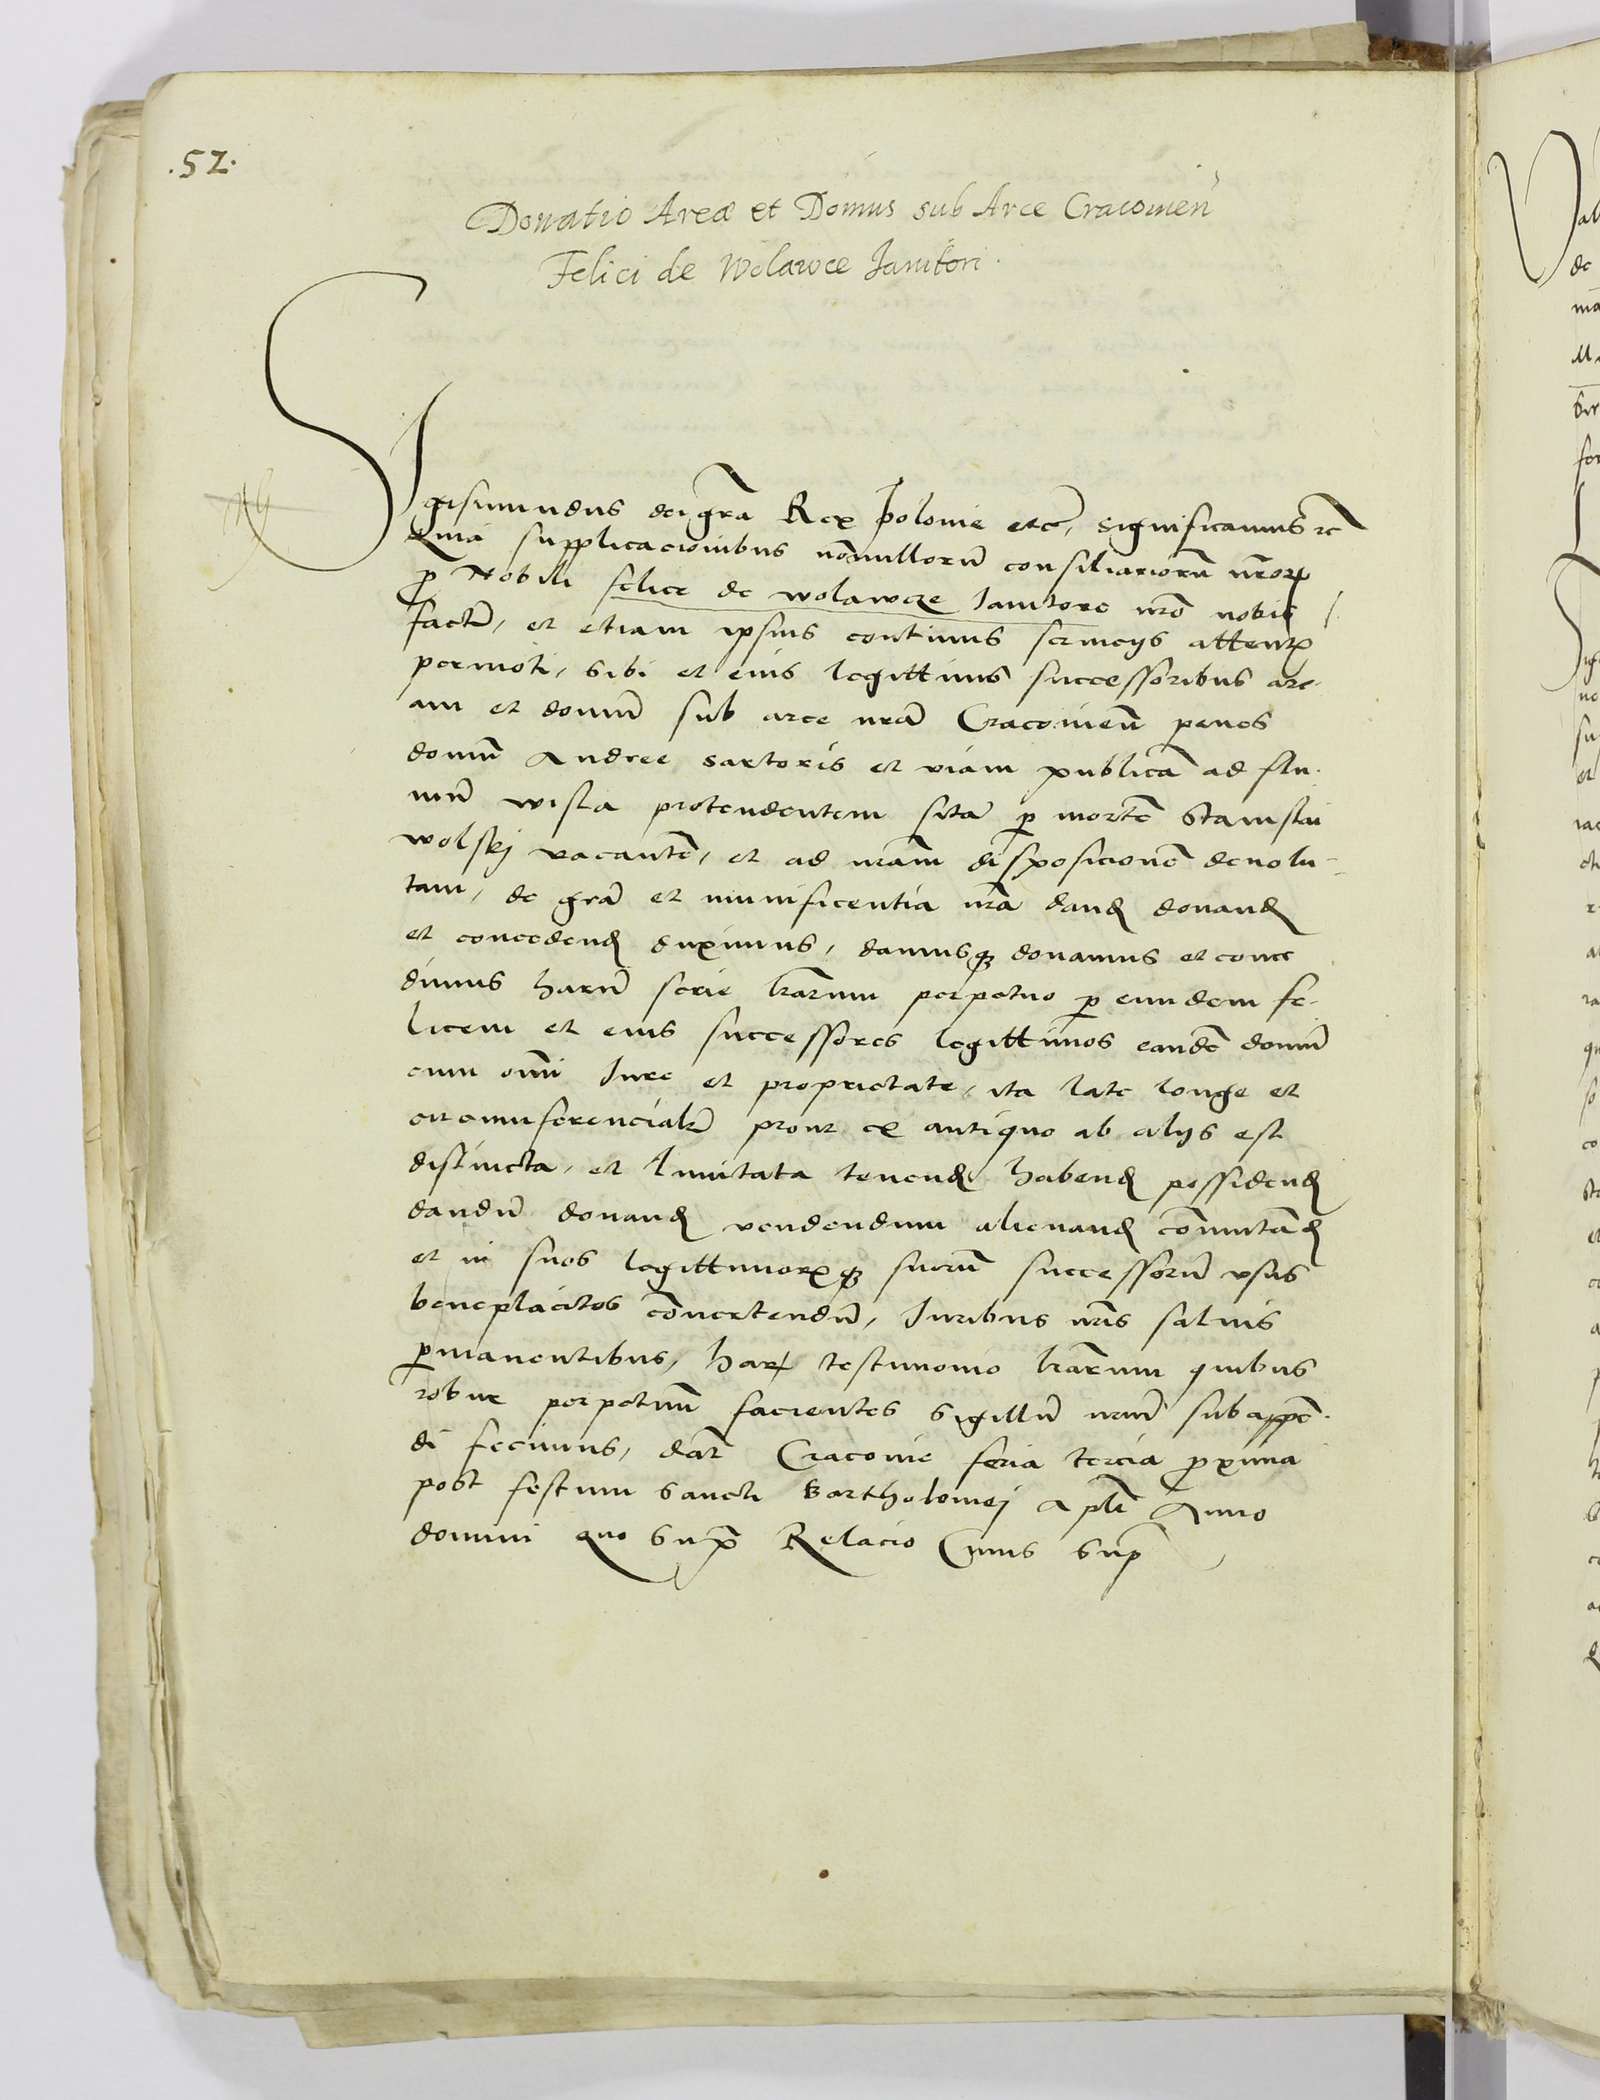 .52.
Donatio Areæ et Domus sub Arce Cracouien̄
Felici de Wolawce Janitori.
SIgismundus dei gr̄a Rex polonie etc̄, significamus etc̄
Quia supplicacionibus nōnullorū consiliariorū nr̄oꝝ
ꝓ Nobili felice de wolawcze Ianitore nr̄o nobis
factis, et etiam ipsius continuis seruicijs attentis
permoti, sibi et eius legittimis successoribus are-
am et domū sub arce nr̄a Cracouien̄ penes
domū Andree sartoris et viam publicā ad flu-
uiū wisla protendentem sitā ꝑ mortē Stanislai
wolskj vacantē, et ad nr̄am disposicionē deuolu-
tam, de gr̄a et munificentia nr̄a dand donand
et concedend duximus, damusqꝫ donamus et conce
dimus harū serie lr̄arum perpetuo ꝑ eundem fe-
licem et eius successores legittimos eandē domū
cum om̄i Iure et proprietate, ita late longe et
circumferencialr̄ prout ex antiquo ab alijs est
distincta, et limitata tenend habend possidend
dandū donand vendendum alienand cōmutād
et in suos legittimorꝫqꝫ suorū successorū vsus
beneplacitos cōuertendū, Iuribus nr̄is saluis
ꝑmanentibus, haꝝ testimonio lr̄arum quibus
robur perpetuū facientes sigillū nr̄um subappē-
di fecimus, dat̄ Cracouie feria tercia ꝓxima
post festum Sancti Bartholomej Apl̄i Anno
domini quo supra Relacio Cuius sup̄